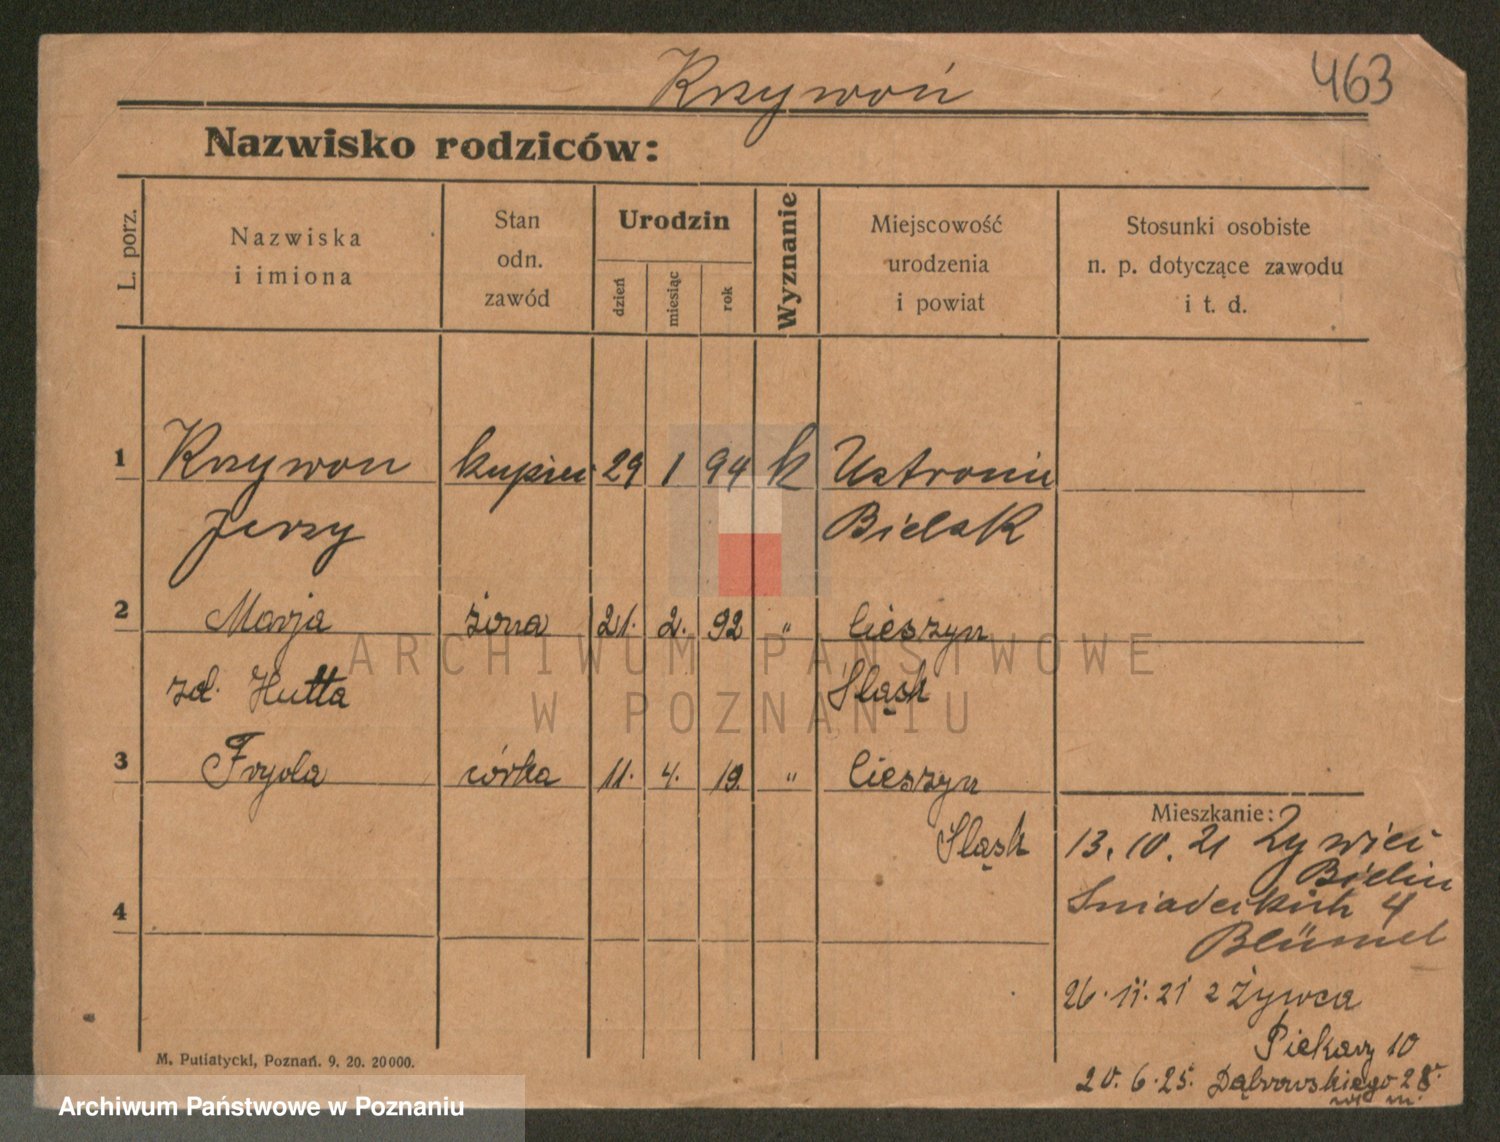 Krzywoń 463
Nazwisko rodziców:
L. porz.
Nazwiska
i imiona
Stan
odn.
zawód
Urodzin
dzień
miesiąc
rok
Wyznanie
Miejscowość
urodzenia
i powiat
Stosunki osobiste
n. p. dotyczące zawodu
i t. d.
1 Krzywon kupiec 29 1 94 k Ustronie
Jerzy Bielsk
2 Marja żona 21. 2. 92 " Cieszyn
zd. Hutta Sląsk
3 Fryda córka 11. 4. 19. " Cieszyn
Sląsk
4
Mieszkanie:
13. 10. 21 Zywiec
Sniadeckich 4
Blümel
26. 11. 21 z Żywca
Piekary 10
20. 6. 25. Dąbrowskiego 28
M. Putiatycki, Poznań. 9. 20. 20000.
ARCHIWUM PAŃSTWOWE
W POZNANIU
Archiwum Państwowe w Poznaniu